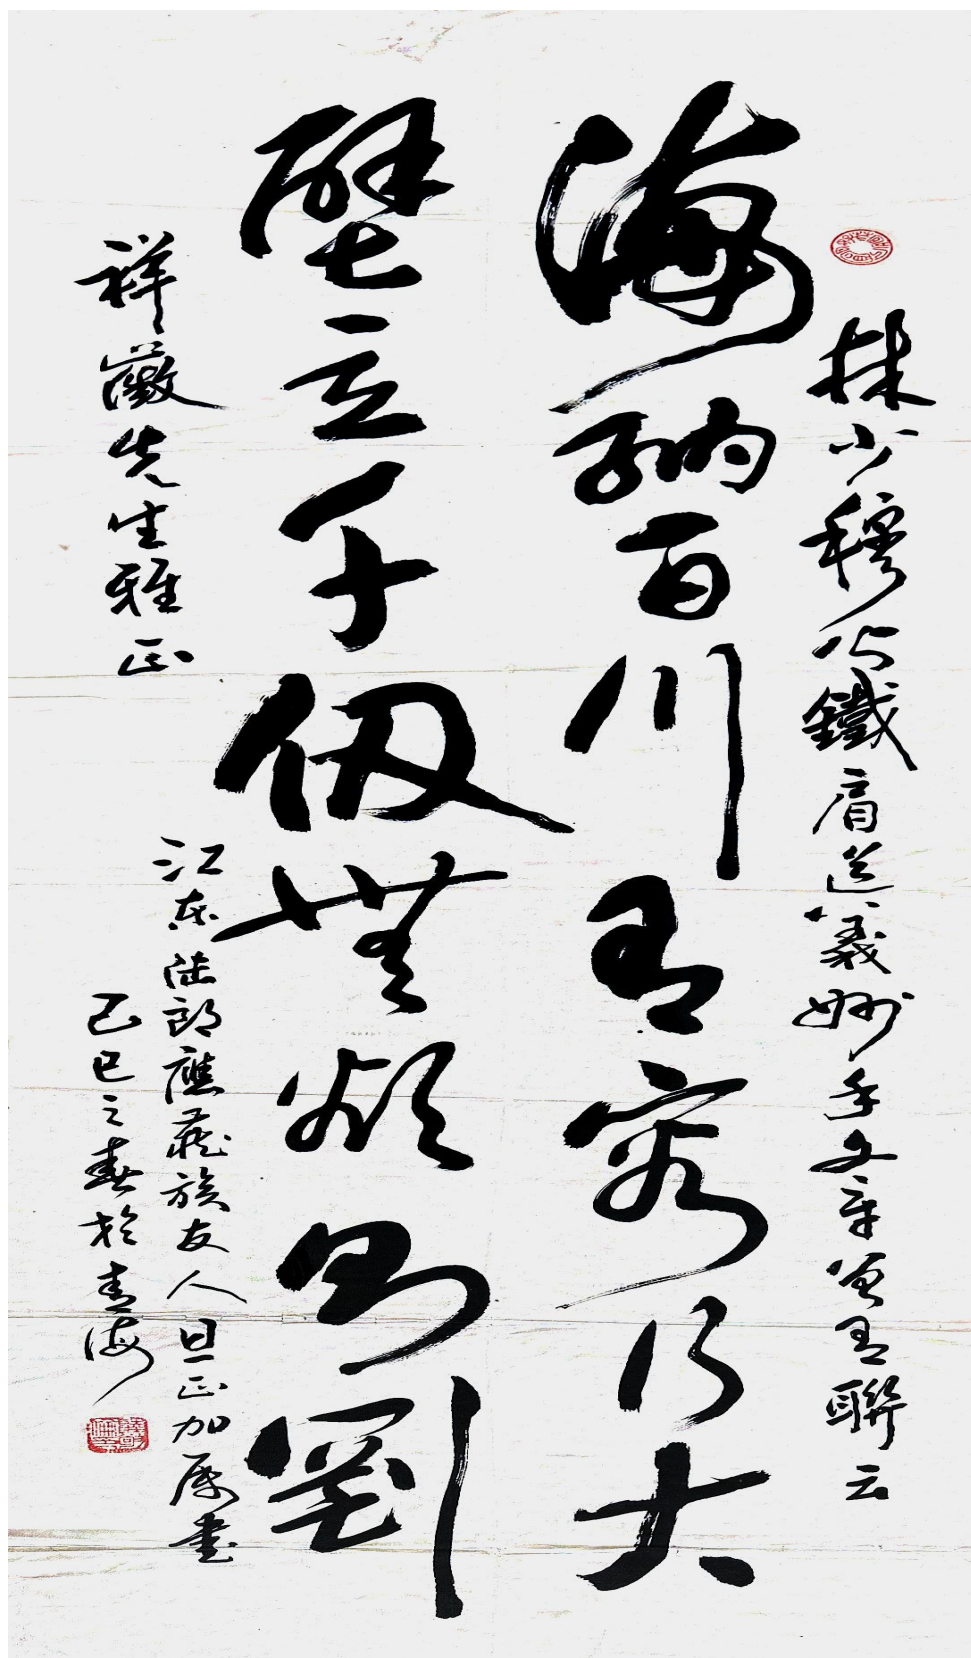 林少穆公鐵肩道義妙手文章曾有聯云
海納百川有容乃大
壁立千仞無欲則剛
祥先生雅正
江東陸郎應藏族友人旦正加属書
己巳之春於青海